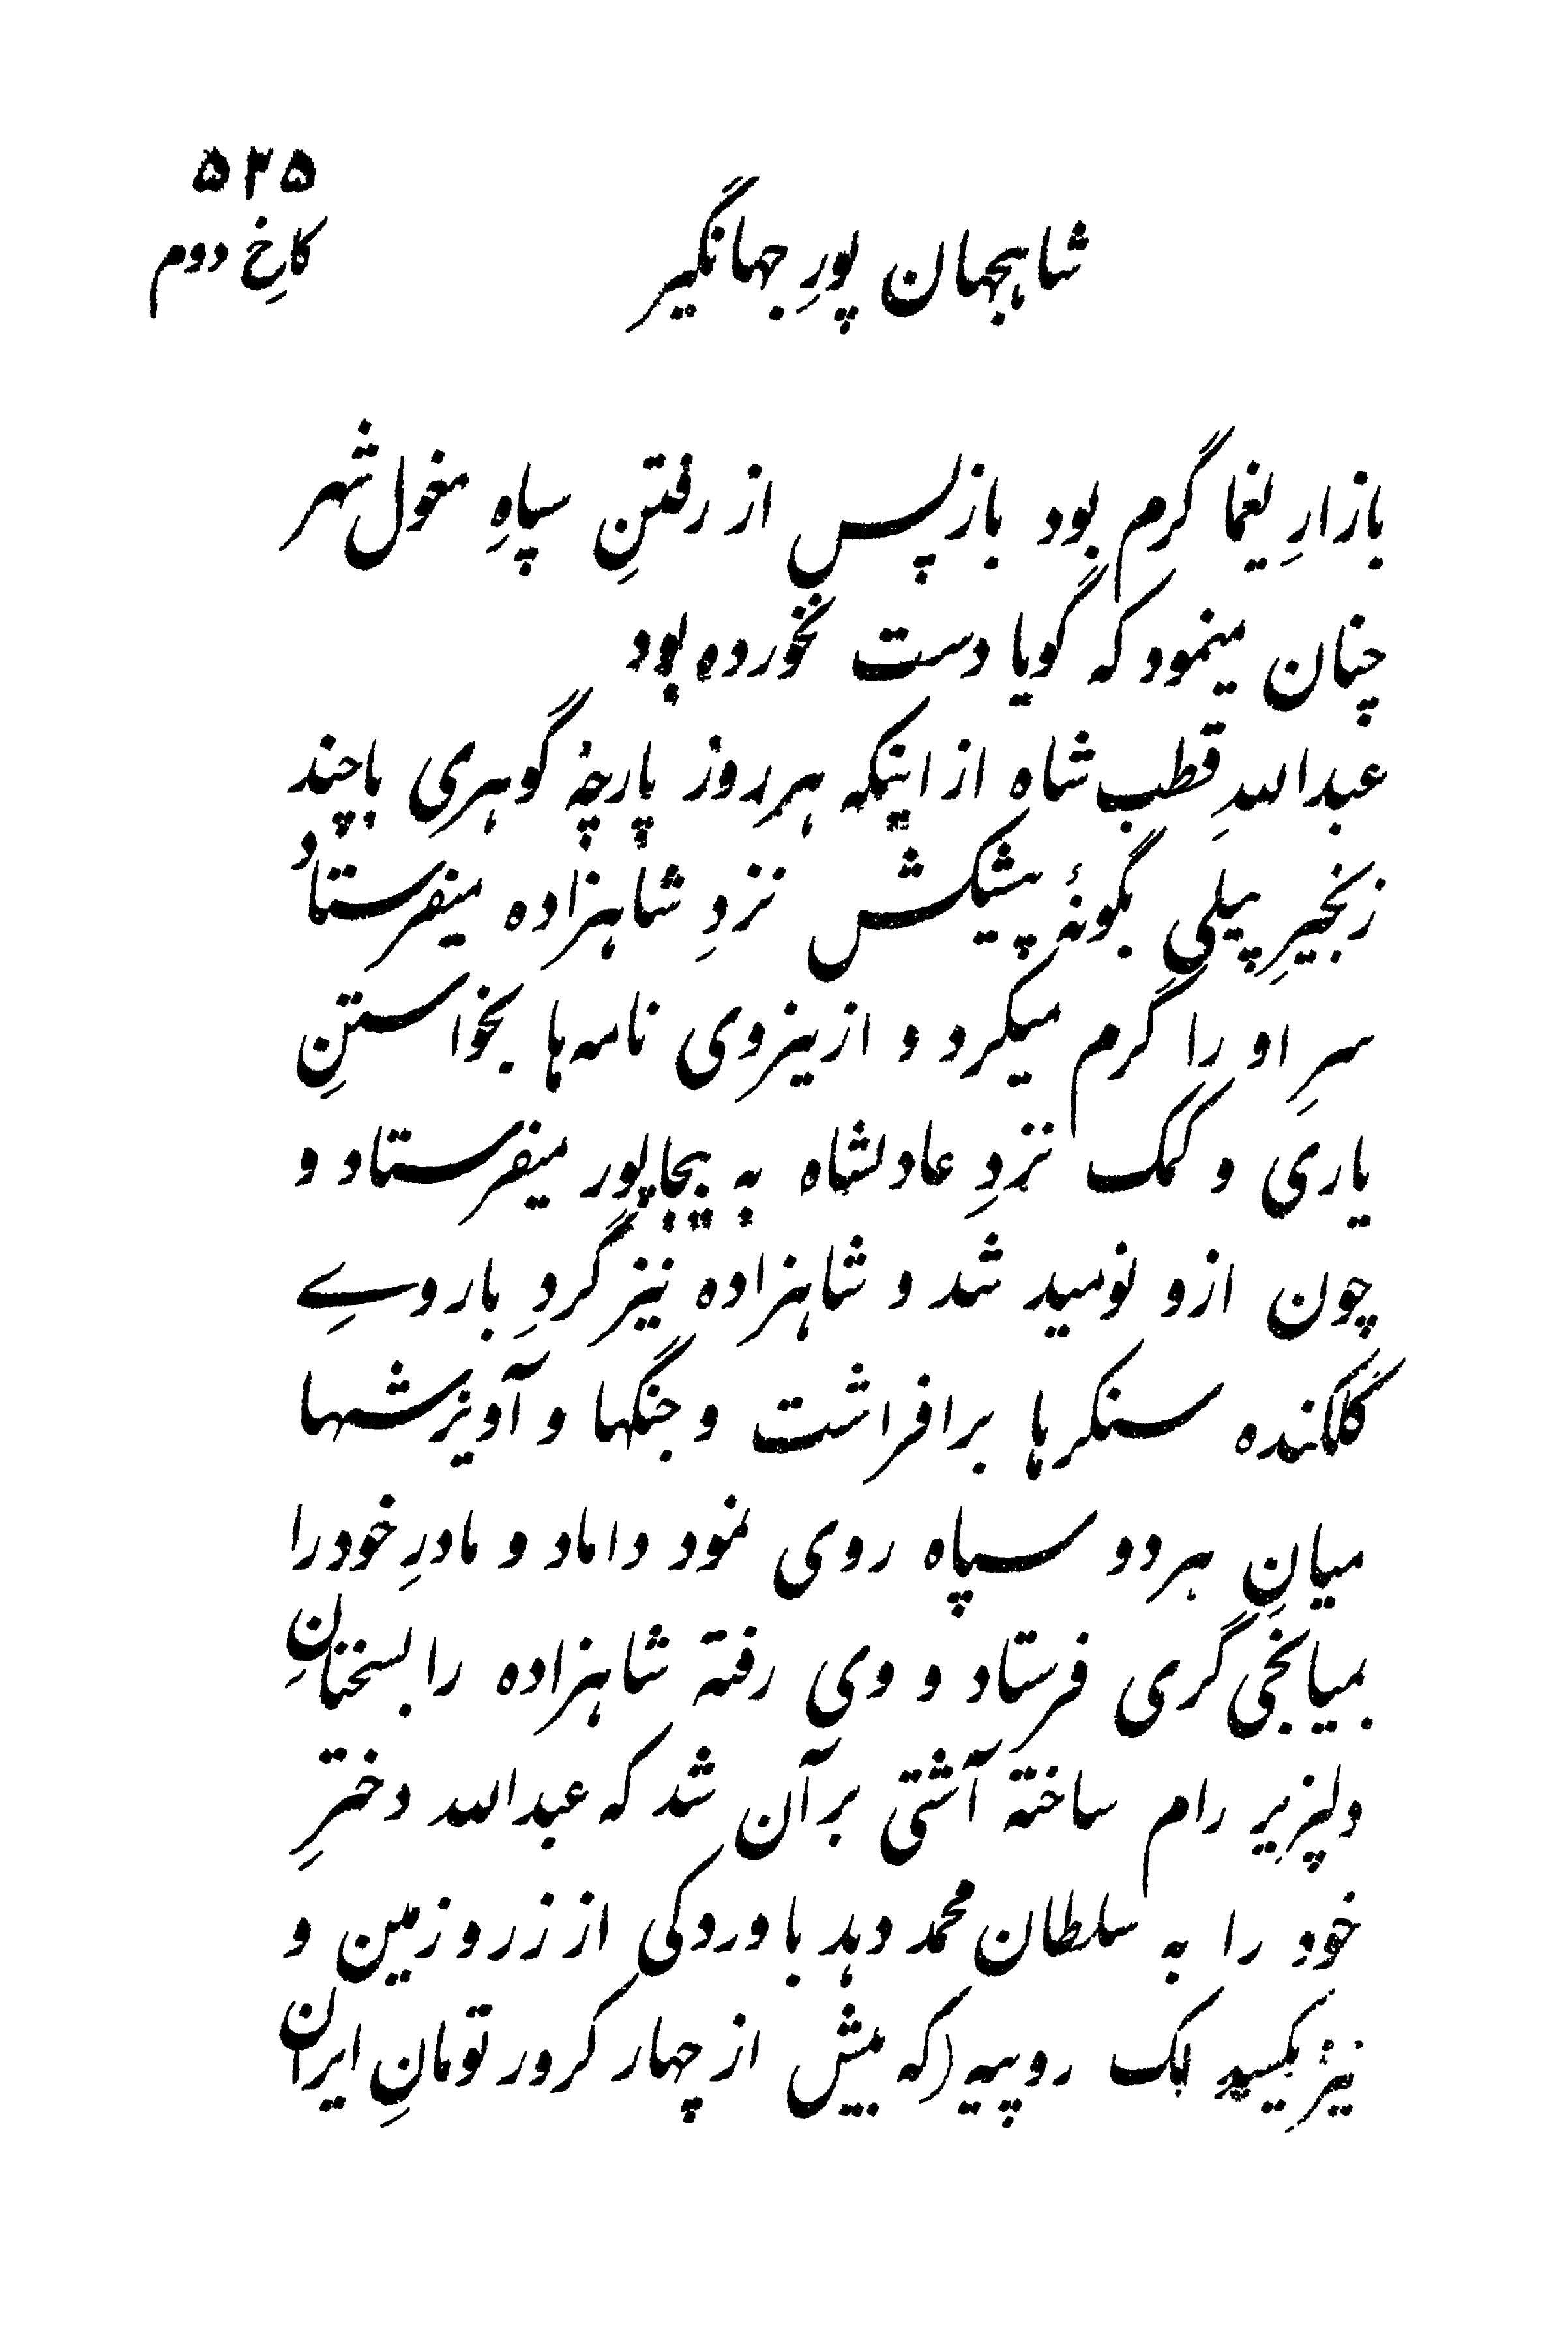 ۵۲۵
کاخِ دوم
شاهجهان پورِ جهانگیر
بازارِ یغما گرم بود بازپس از رفتنِ سپاهِ مغول شهر
چنان مینمود که گویا دست نخورده بود
عبداللهِ قطب شاه از اینکه هر روز پارچهٔ گوهری با چند
زنجیرِ پیلی بگونهٔ پیشکش نزدِ شاهزاده میفرستاد
سرِ او را گرم میکرد و از ینروی نامه ها بخواستنِ
یاری و کمک نزدِ عادلشاه به بیجاپور میفرستاد و
چون ازو نومید شد و شاهزاده نیز گردِ باروےِ
گلکنده سنکرها برافراشت و جنگها و آویزشها
میانِ هر دو سپاه روی نمود داماد و مادرِ خود را
بمیانجی گری فرستاد و وی رفته شاهزاده را بسخنانِ
دلپزیر رام ساخته آشتی بر آن شد که عبدالله دخترِ
خود را به سلطان محمد دهد با وردکی از زر و زمین و
نیز یکسد لک روپیه (که بیش از چهار کرور تومانِ ایران